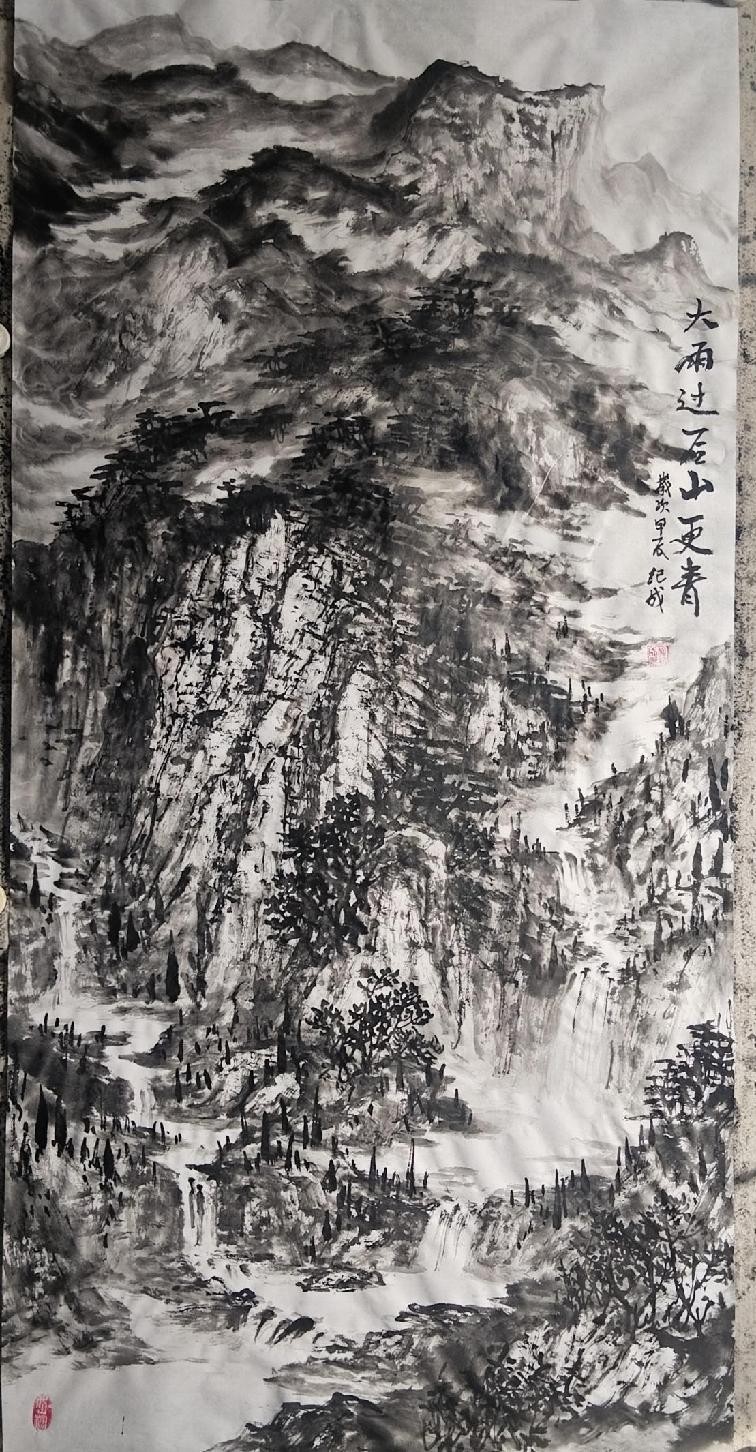 大雨过后山更青
岁次甲辰 纪成